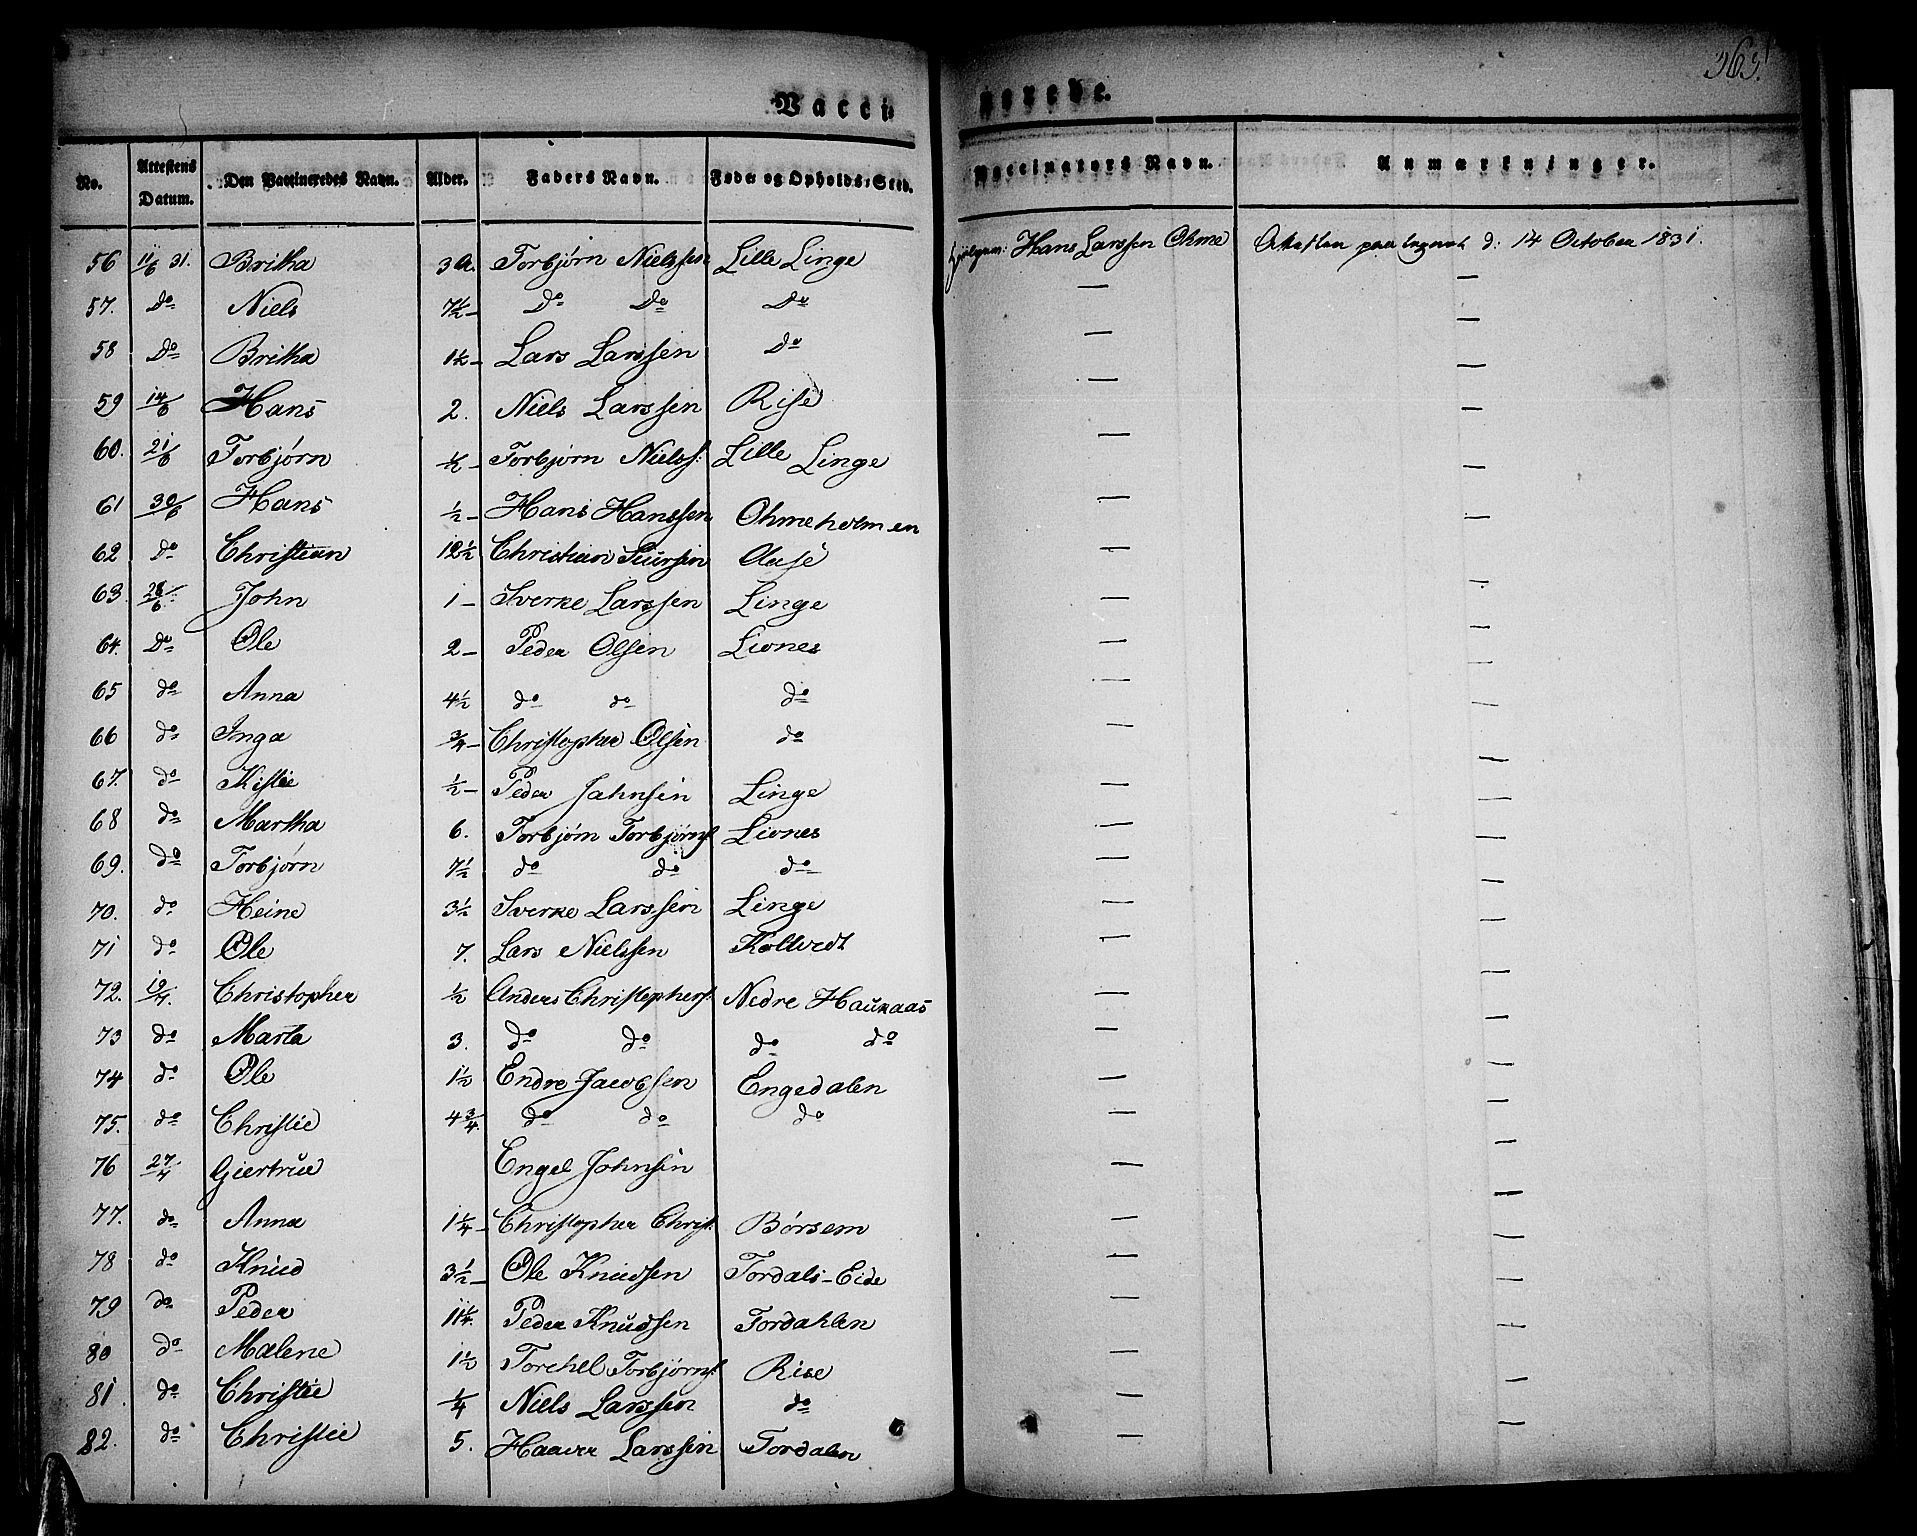 363.
Vaccinerede.
No. Attestens Datum. Den Vaccineredes Navn. Alder. Faders Navn. Føde og Opholds-Sted. Vaccinators Navn. Anmærkninger.
56 11/6 31. Britha 3 A. Torbjørn Nielssen Lille Linge Hans Larssen Ohme d: 14 October 1831.
57. Do Niels 7 1/2 - Do Do Do — —
58 Do Britha 1 1/2 - Lars Larssen Do — —
59 14/6 Hans 2. Niels Larssen Rise — —
60. 21/6 Torbjørn 1/2 - Torbjørn Nielss: Lille Linge — —
61 30/6 Hans 1/2 - Hans Hanssen Ohmeholmen — —
62 do Christian 12 1/2 Christian Siursen Aase — —
63. 28/6 John 1 - Sverke Larssen Linge — —
64. Do Ole 2 - Peder Olsen Liones — —
65 do Anna 4 1/2 do do do — —
66 do Inga 3/4 - Christopher Olsen do — —
67. do Kistie 1/2 - Peder Johnsen Linge — —
68 do Martha 6. Torbjørn Torbjørns: Liones — —
69. do Torbjørn 7 1/2 do do do — —
70. do Heine 3 1/2 Sverke Larssen Linge — —
71 do Ole 7. Lars Nielssen Kolltvedt — —
72. 19/7. Christopher 1/2 Anders Christophers: Nedre Haukaas — —
73 do Marta 3. do do do do — —
74 do Ole 1 1/2 Endre Jacobsen Engedalen — —
75. do Christie 4 3/4. do do do — —
76 27/4 Giertrue Engel Johnsen — —
77. do Anna 1 1/4 - Christopher Christ: Børsem — —
78 do Knud 3 1/2 - Ole Knudsen Tordals-Eide — —
79 do Peder 11 1/4 Peder Knudsen Tordahlen — —
80 do Malene 1 1/2 Torchel Torbjørns: Rise — —
81. do Christie 1/4 Niels Larssen do — —
82. do Christie 5. Haaver Larssen Tordalen — —